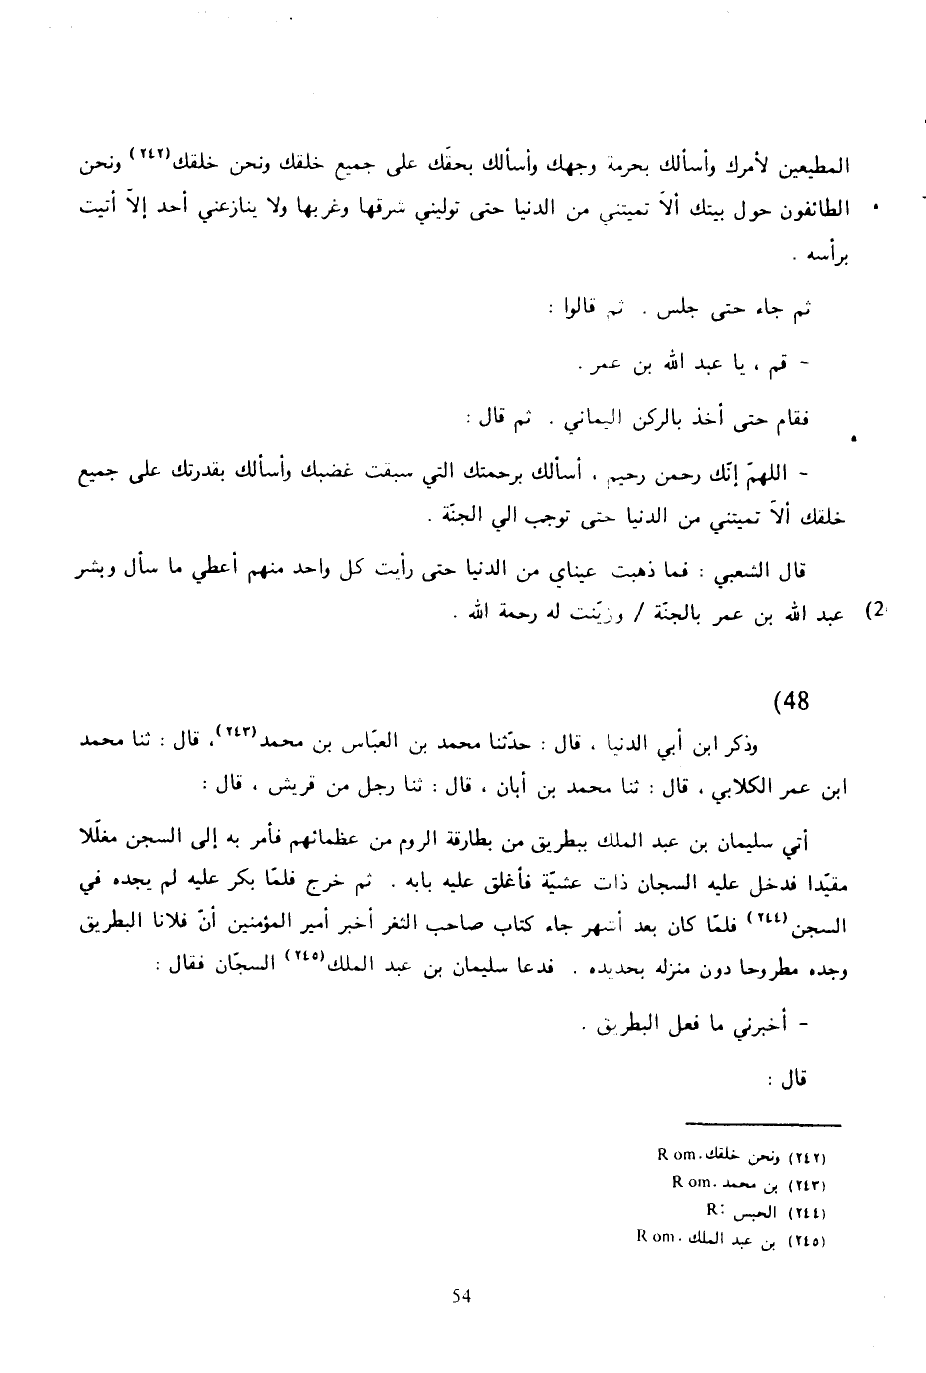 المطيعين لأمرك وأسألك بحرمة وجهك وأسألك بحقّك على جميع خلقك ونحن خلقك(٢٤٢) ونحن
الطائفون حول بيتك ألاّ تميتني من الدنيا حتى توليني شرقها وغربها ولا ينازعني أحد إلاّ أتيت
برأسه .
ثم جاء حتى جلس . ثم قالوا :
– قم ، يا عبد الله بن عمر .
فقام حتى أخذ بالركن اليماني . ثم قال :
– اللهمّ إنّك رحمن رحيم ، أسألك برحمتك التي سبقت غضبك وأسألك بقدرتك على جميع
خلقك ألاّ تميتني من الدنيا حتى توجب الي الجنّة .
قال الشعبي : فما ذهبت عيناي من الدنيا حتى رأيت كل واحد منهم أعطي ما سأل وبشر
(2 عبد الله بن عمر بالجنّة / وزيّنت له رحمة الله .
(48
وذكر ابن أبي الدنيا ، قال : حدّثنا محمد بن العبّاس بن محمد(٢٤٣)، قال : ثنا محمد
ابن عمر الكلابي ، قال : ثنا محمد بن أبان ، قال : ثنا رجل من قريش ، قال :
أتي سليمان بن عبد الملك ببطريق من بطارقة الروم من عظمائهم فأمر به إلى السجن مغلّلا
مقيّدا فدخل عليه السجان ذات عشيّة فأغلق عليه بابه . ثم خرج فلمّا بكر عليه لم يجده في
السجن(٢٤٤) فلمّا كان بعد أشهر جاء كتاب صاحب الثغر أخبر أمير المؤمنين أنّ فلانا البطريق
وجده مطروحا دون منزله بحديده . فدعا سليمان بن عبد الملك(٢٤٥) السجّان فقال :
– أخبرني ما فعل البطريق .
قال :
(٢٤٢) ونحن خلقك .R om
(٢٤٣) بن محمد .R om
(٢٤٤) الحبس :R
(٢٤٥) بن عبد الملك .R om
54